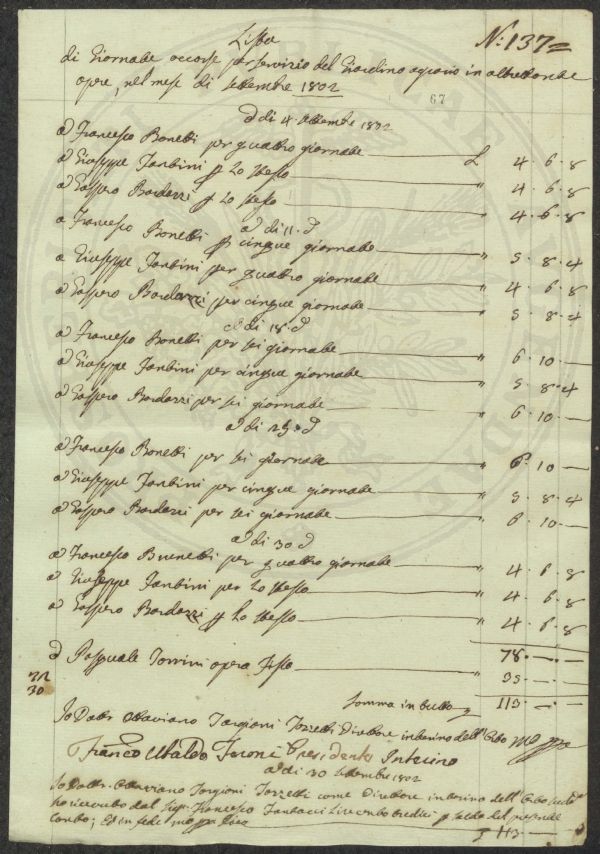 N.° 137=
Lista
di Giornate occorse per servizio del Giardino agrario in altrettante
opere, nel mese di settembre 1802
67
A di 4 settembre 1802
a Francesco Bonetti per quattro giornate £ 4. 6. 8
a Giuseppe Fantini p Lo stesso " 4. 6. 8
a Gaspero Bardazzi p Lo stesso " 4. 6. 8
a di 11. d
a Francesco Bonetti p cinque giornate " 5. 8. 4
a Giuseppe Fantini per quattro giornate " 4. 6. 8
a Gaspero Bardazzi per cinque giornate " 5. 8. 4
a di 18. d
a Francesco Bonetti per sei giornate " 6. 10. —
a Giuseppe Fantini per cinque giornate " 5. 8. 4
a Gaspero Bardazzi per sei giornate " 6. 10. —
a di 25. d
a Francesco Bonetti per sei giornate " 6. 10 —
a Giuseppe Fantini per cinque giornate " 5. 8. 4
a Gaspero Bardazzi per sei giornate " 6. 10. —
a di 30 d
a Francesco Brunetti per quattro giornate " 4. 6. 8
a Giuseppe Fantini per Lo stesso " 4. 6. 8
a Gaspero Bardazzi p Lo stesso " 4. 6. 8
78. —. —
a Pasquale Tonini opera " 35. —. —
30
Somma in tutto £ 113. —. —
Io Dottr. Ottaviano Targioni Tozzetti Direttore interino dell' Orto
Franco Ubaldo Feroni Presidente Interino
a di 30 settembre 1802
Io Dottr. Ottaviano Targioni Tozzetti come Direttore interino dell' Orto
ho ricevuto dal Sig. Francesco Fantacci Lire cento tredici p saldo del presente
conto; ed in fede mo ppa £ 113 —